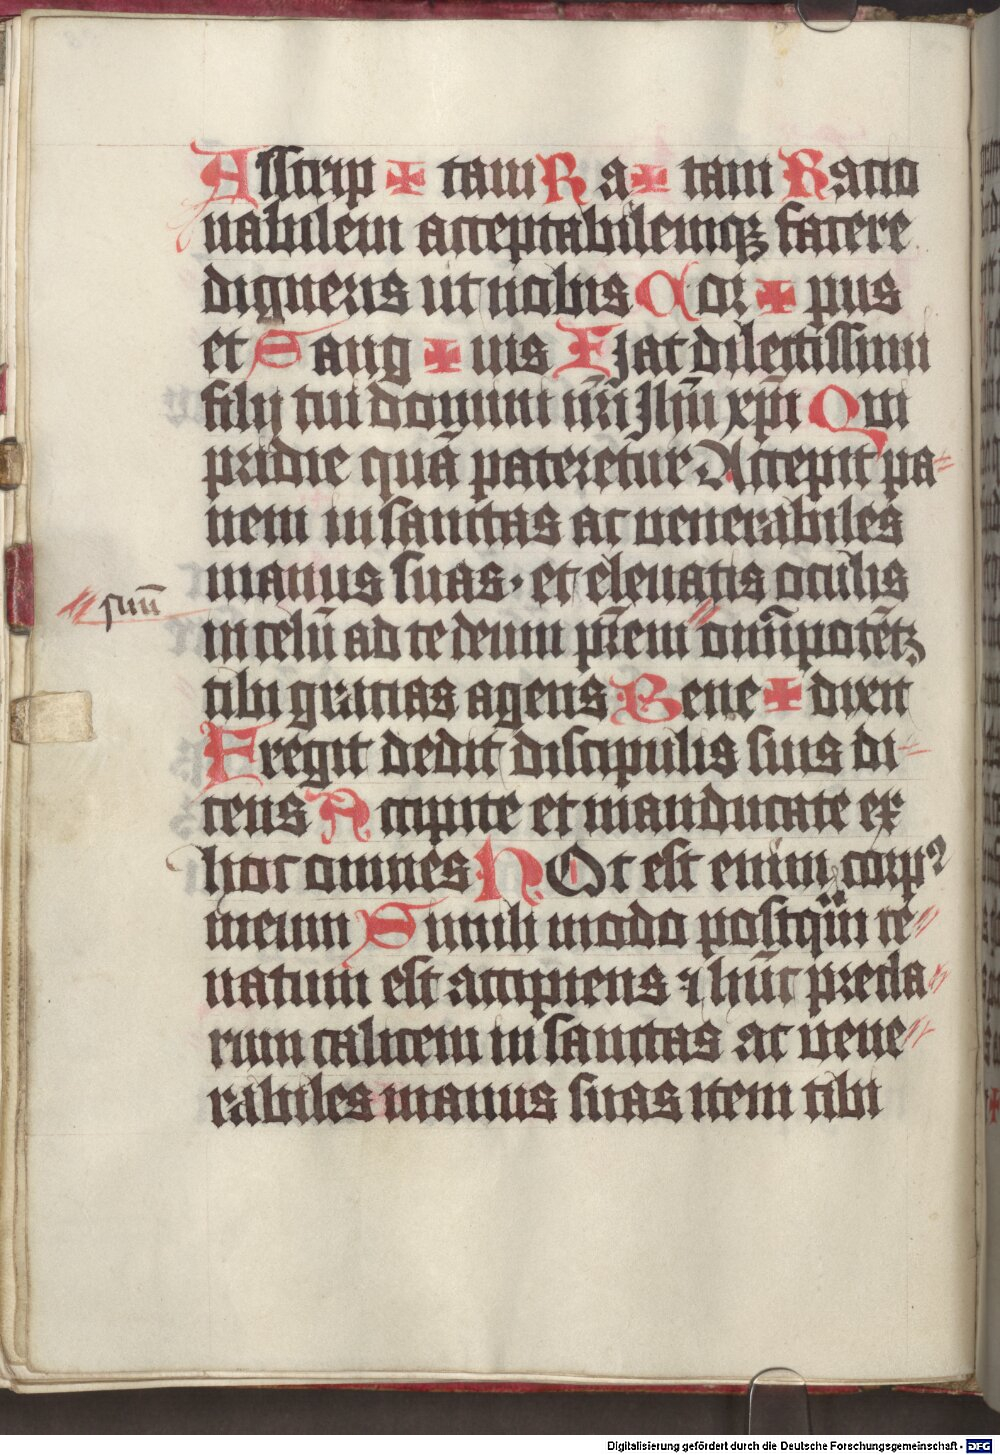 Asscrip ✠ tam Ra ✠ tam Racio
nabilem acceptabilemqꝫ facere
digneris ut nobis Cor ✠ pus
et Sang ✠ uis Fiat dilectissimi
filij tui domini nr̄i Jhū xp̄i Qui
pridie quā pateretur Accepit pa⸗
nem in sanctas ac venerabiles
manus suas · et eleuatis oculis
suū
in celū ad te deum pr̄em om̄ipotētꝫ
tibi gracias agens Bene ✠ dixit
Fregit dedit discipulis suis di⸗
cens Accipite et manducate ex
hoc omnes HOc est enim corpꝰ
meum Simili modo postqͣm ce⸗
natum est accipiens ⁊ hūc precla⸗
rum calicem in sanctas ac vene⸗
rabiles manus suas item tibi
Digitalisierung gefördert durch die Deutsche Forschungsgemeinschaft - DFG